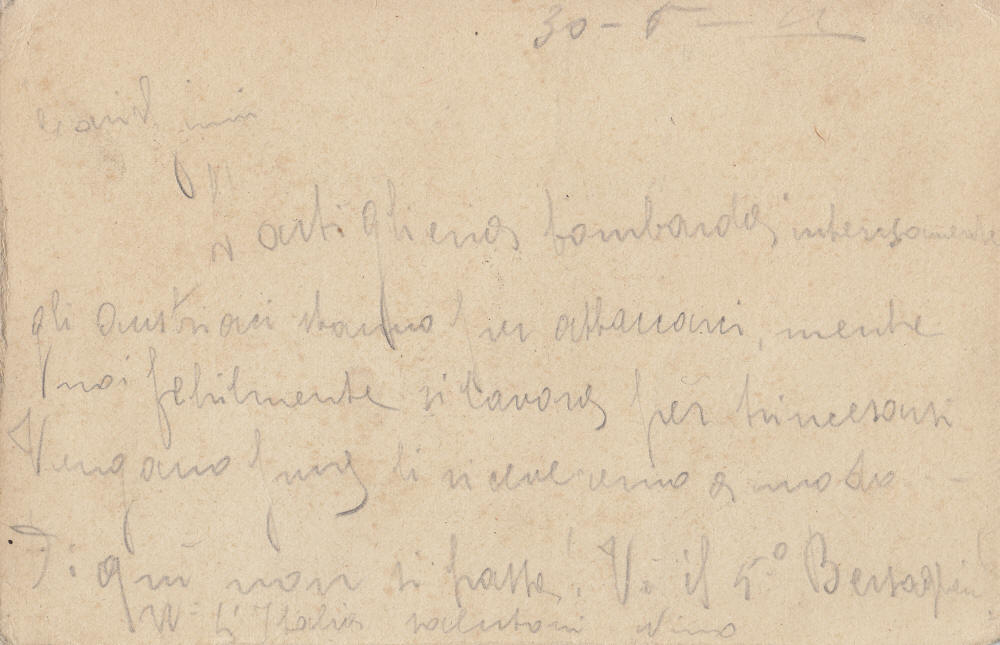 30 - 5 -
Cari miei
L'artiglieria bombarda intensamente
gli austriaci stanno per attaccarci, mentre
noi febbrilmente si lavora per trincerarsi
Vengano pure li riceveremo a modo
Di qui non si passa! Vi è il 5° Bersaglieri!
W L'Italia salutoni Nino